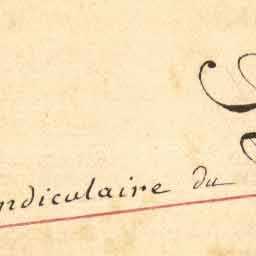 ndiculaire du